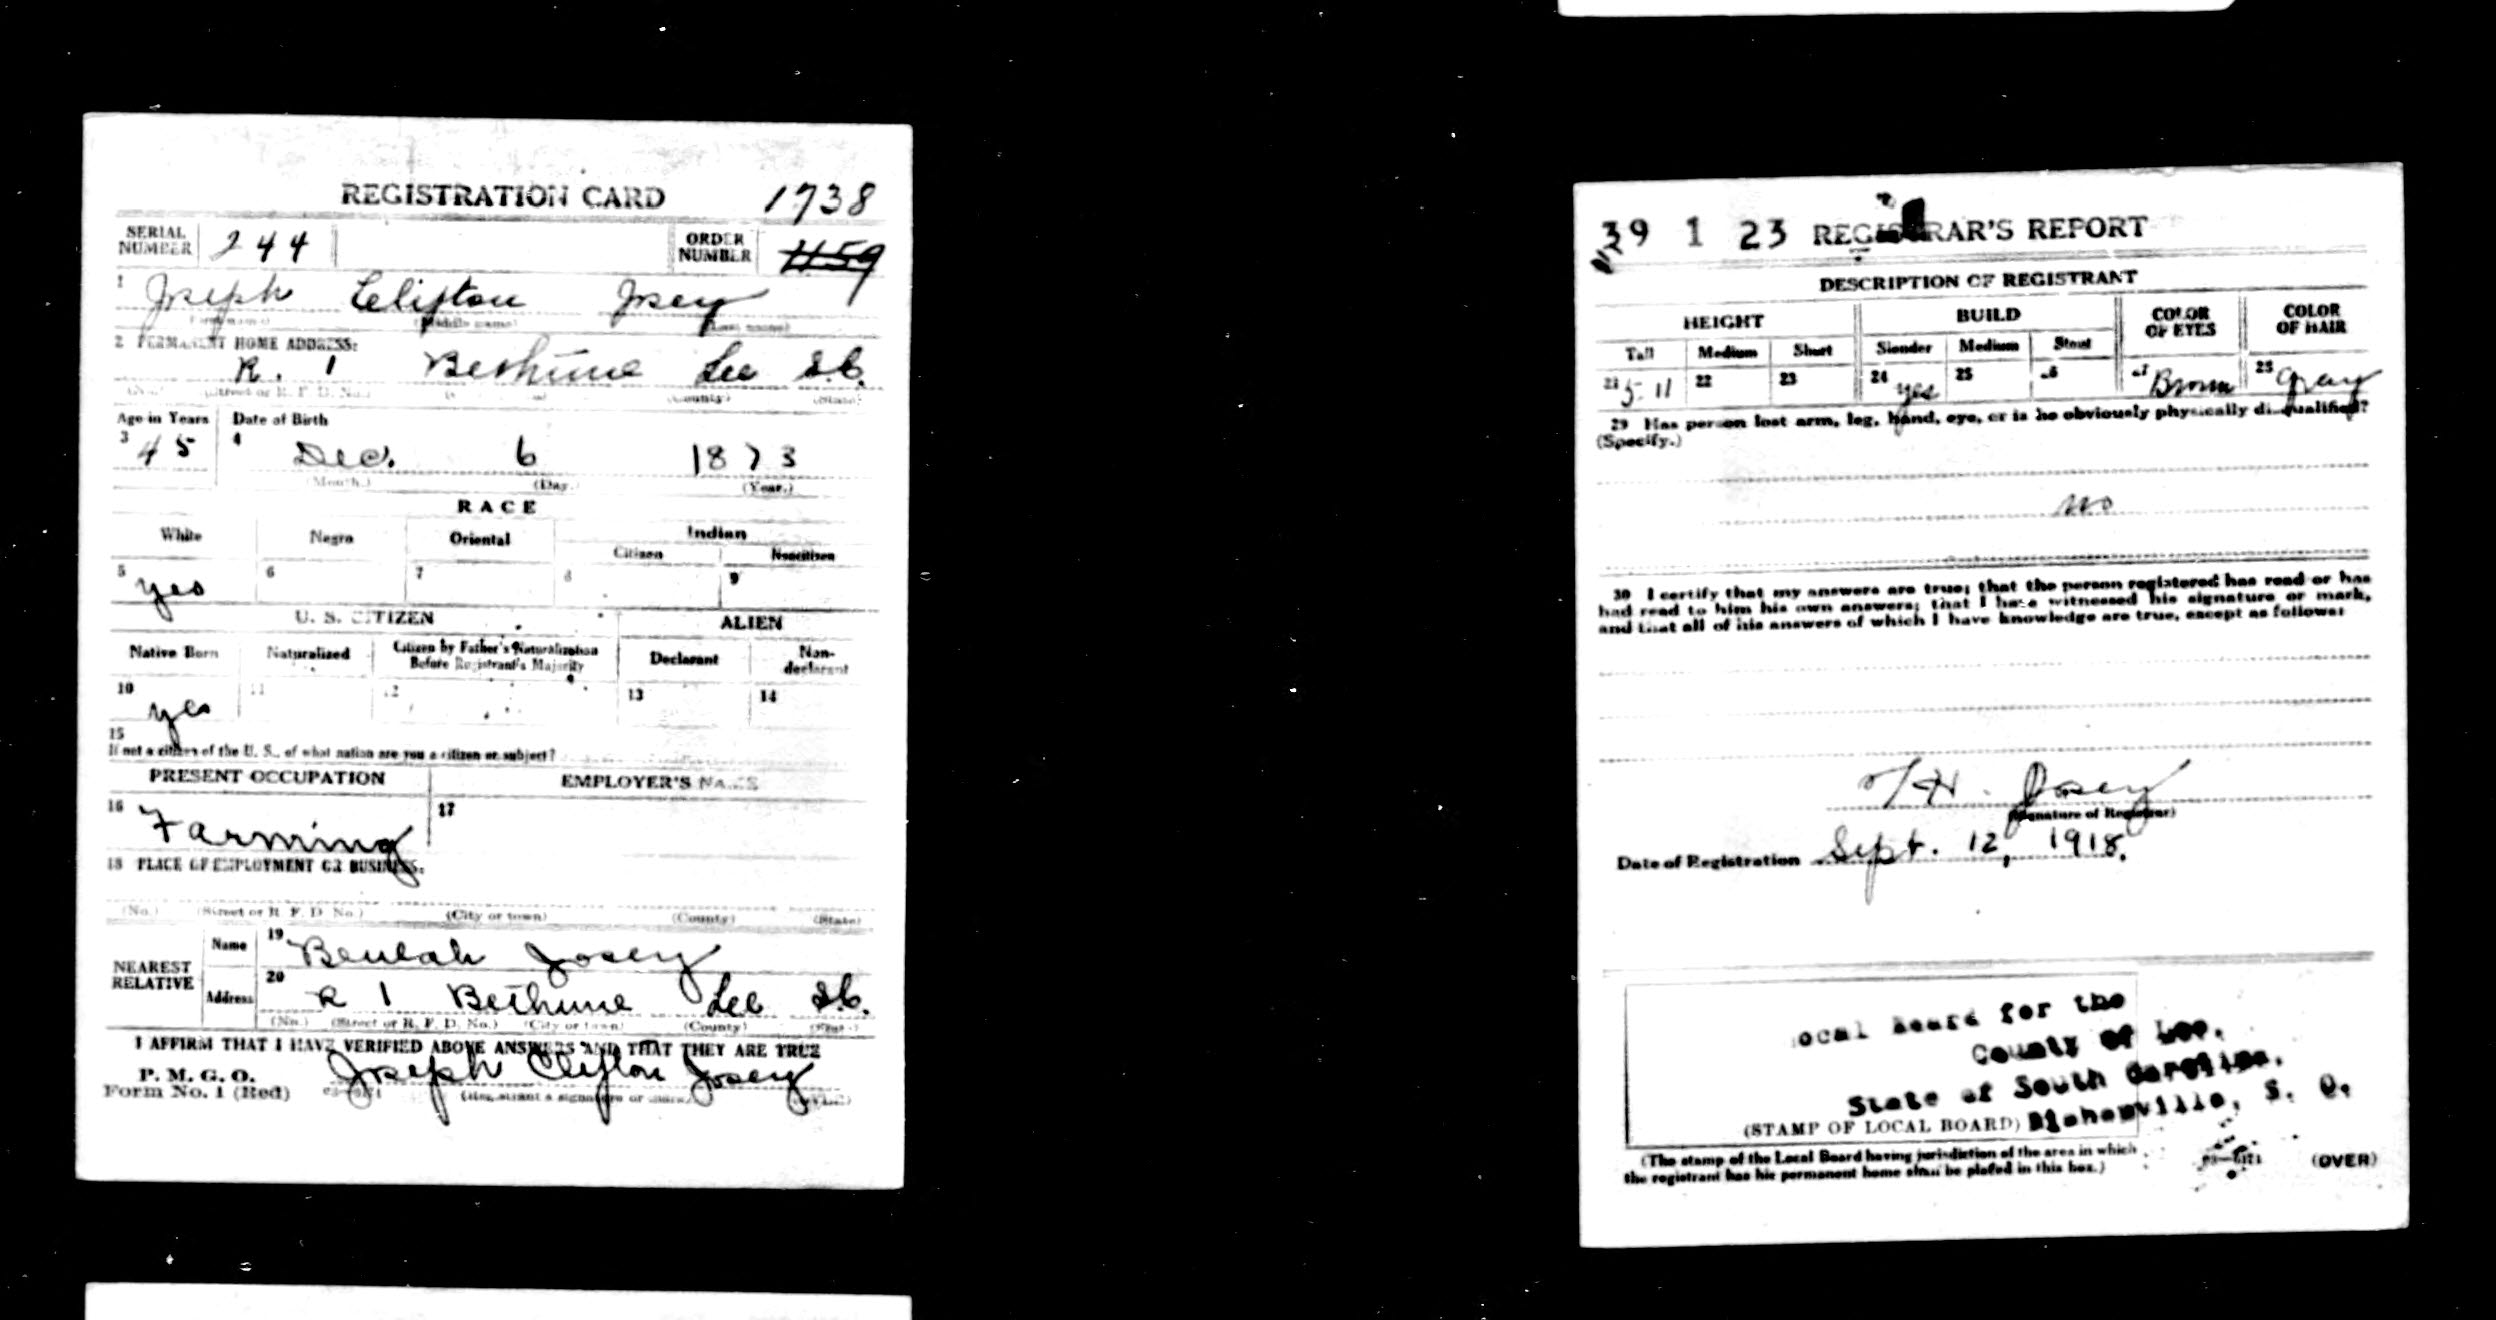 REGISTRATION CARD 1738
SERIAL NUMBER 244 ORDER NUMBER 459
1 Joseph Clifton Josey
(First name) (Middle name) (Last name)
2 PERMANENT HOME ADDRESS:
R. 1 Bethune Lee S.C.
(No.) (Street or R. F. D. No.) (County) (State)
Age in Years Date of Birth
3 45 4 Dec. 6 1873
(Month.) (Day.) (Year.)
RACE
White Negro Oriental Indian
Citizen Noncitizen
5 yes 6 7 8 9
U. S. CITIZEN ALIEN
Native Born Naturalized Citizen by Father's Naturalization Before Registrant's Majority Declarant Non-declarant
10 yes 11 12 13 14
15
If not a citizen of the U. S., of what nation are you a citizen or subject?
PRESENT OCCUPATION EMPLOYER'S NAME
16 Farming 17
18 PLACE OF EMPLOYMENT OR BUSINESS:
(No.) (Street or R. F. D. No.) (City or town) (County) (State)
NEAREST RELATIVE Name 19 Beulah Josey
Address 20 R 1 Bethune Lee S.C.
(No.) (Street or R. F. D. No.) (City or town) (County) (State)
I AFFIRM THAT I HAVE VERIFIED ABOVE ANSWERS AND THAT THEY ARE TRUE
P. M. G. O.
Form No. 1 (Red) Joseph Clifton Josey
(Registrant's signature or mark)
39 1 23 REGISTRAR'S REPORT
DESCRIPTION OF REGISTRANT
HEIGHT BUILD COLOR OF EYES COLOR OF HAIR
Tall Medium Short Slender Medium Stout
21 5 11 22 23 24 yes 25 26 27 Brown 28 gray
29 Has person lost arm, leg, hand, eye, or is he obviously physically disqualified?
(Specify.)
no
30 I certify that my answers are true; that the person registered has read or has
had read to him his own answers; that I have witnessed his signature or mark,
and that all of his answers of which I have knowledge are true, except as follows:
H. Josey
(Signature of Registrar)
Date of Registration Sept. 12, 1918.
Local Board for the
County of Lee,
State of South Carolina,
Bishopville, S. C.
(STAMP OF LOCAL BOARD)
(The stamp of the Local Board having jurisdiction of the area in which
the registrant has his permanent home shall be placed in this box.)
(OVER)